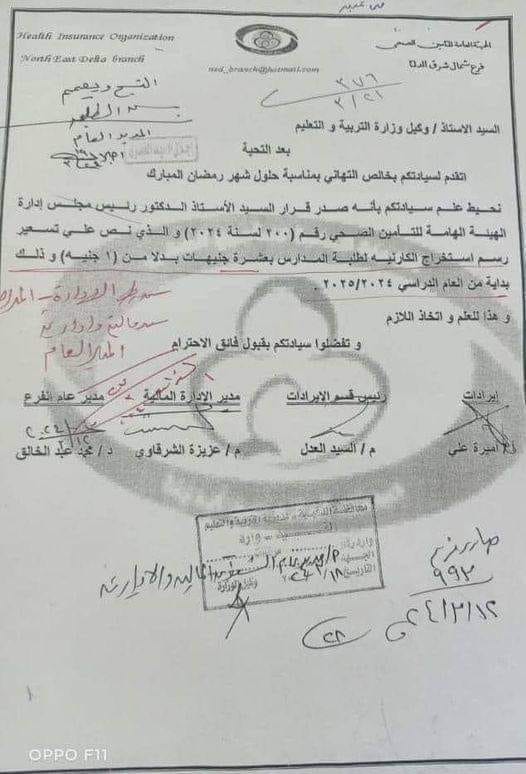 Health Insurance Organization
North East Delta branch
ned_branch@hotmail.com
الهيئة العامة للتأمين الصحي
فرع شمال شرق الدلتا
٣٧٦
٣/٢١
المدير العام
السيد الاستاذ / وكيل وزارة التربية و التعليم
بعد التحية
اتقدم لسيادتكم بخالص التهاني بمناسبة حلول شهر رمضان المبارك
نحيط علم سيادتكم بأنه صدر قرار السيد الأستاذ الدكتور رئيس مجلس إدارة
الهيئة الهامة للتأمين الصحي رقم (٢٠٠ لسنة ٢٠٢٤) و الذي نص علي تسعير
رسم استخراج الكارنيه لطلبة المدارس بعشرة جنيهات بدلا من (١ جنيه) و ذلك
بداية من العام الدراسي ٢٠٢٥/٢٠٢٤
و هذا للعلم و اتخاذ اللازم
و تفضلوا سيادتكم بقبول فائق الاحترام
إيرادات
رئيس قسم الإيرادات
مدير الإدارة المالية
مدير عام الفرع
أميرة علي
م / السيد العدل
م / عزيزة الشرقاوي
د / محمد عبد الخالق
صادر
٩٩٣
OPPO F11